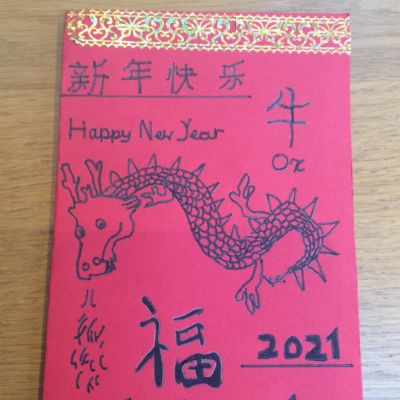 新年快乐
Happy New Year
牛
Ox
福
2021